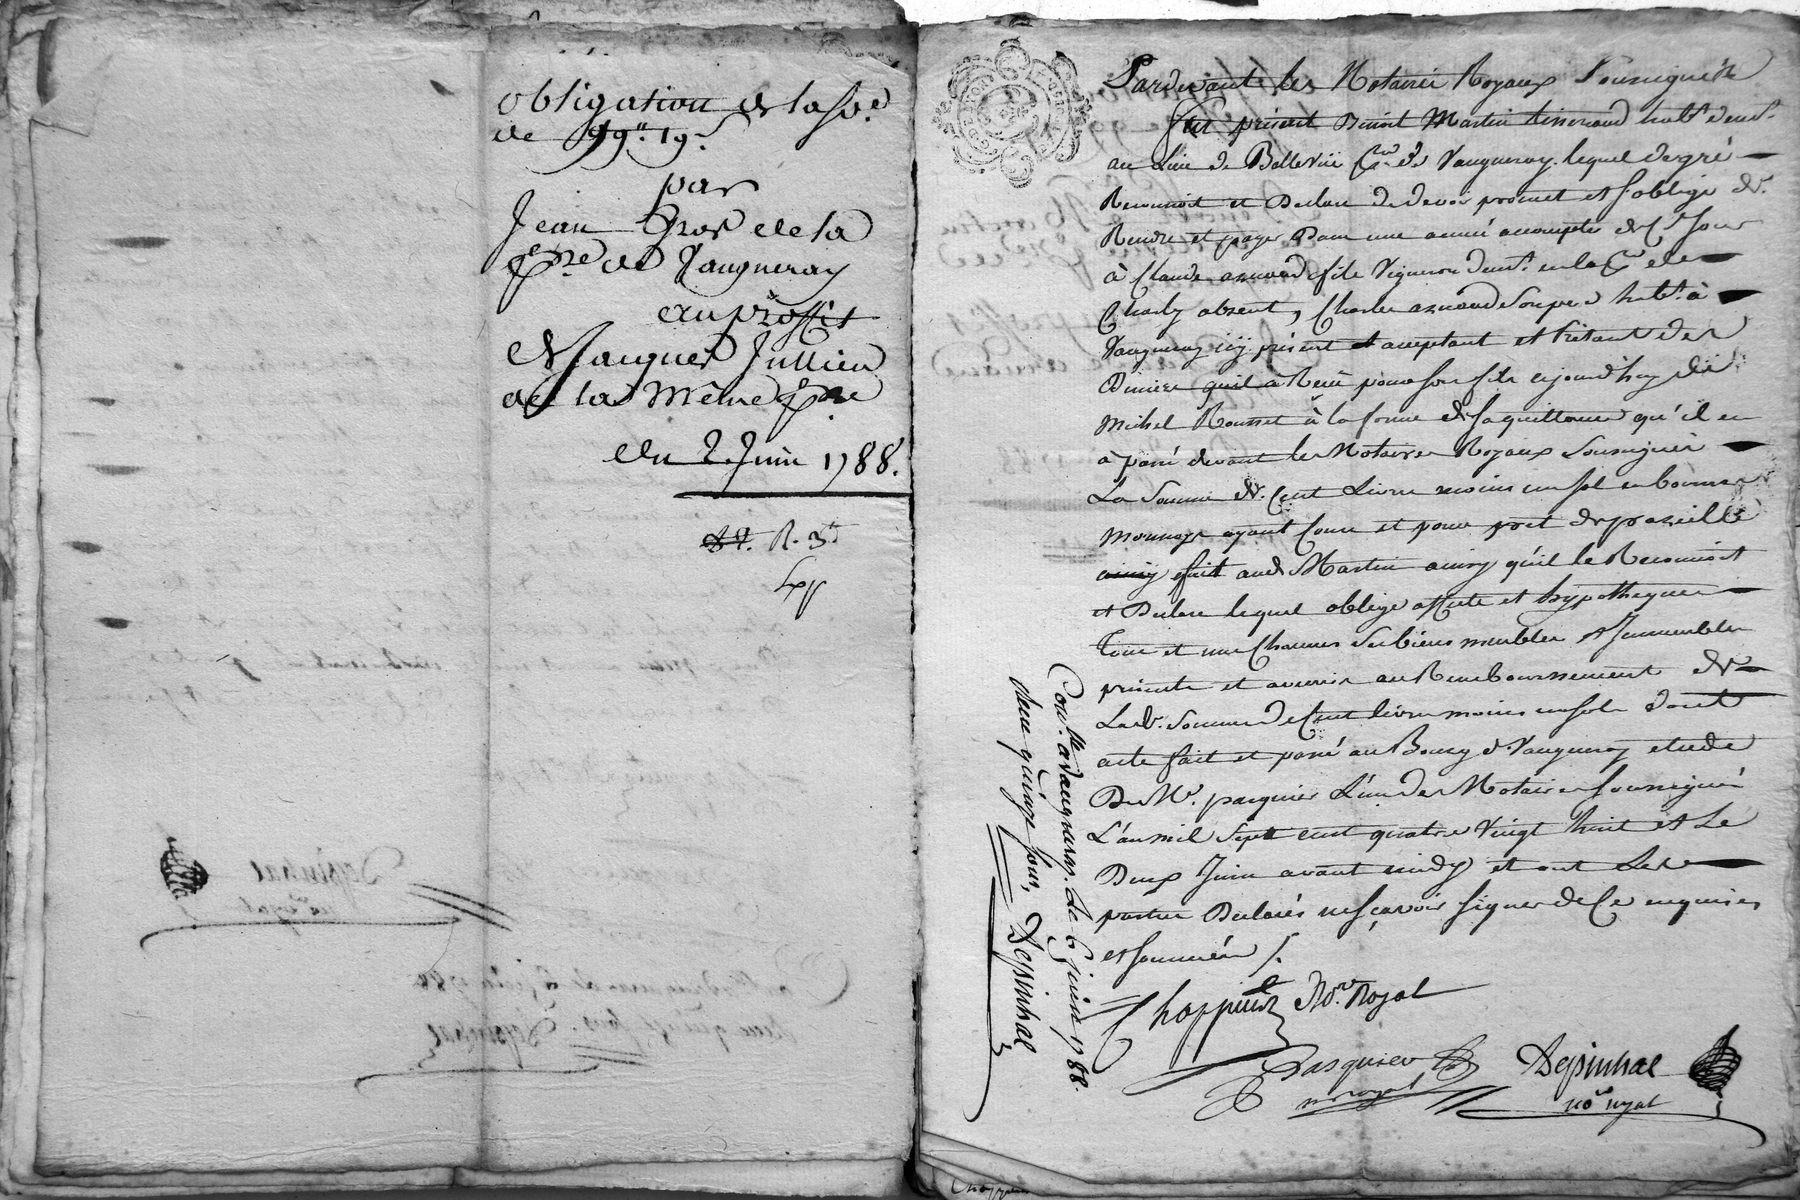 obligation de la so.e
de 99.lt 19.s
par
Jean Gros de la
p.sse de Vaugneray
au proffit
de Jacques Jullien
de la Même p.sse
du 2 Juin 1788.
R. 3.lt
Pardevant les Notaires Royaux Soussignés
fut présent Benoit Martin tisserand hab.t dem.t
au Lieu de Bellevüe p.sse de Vaugneray lequel de gré
Reconnoit et Declare de devoir promet et s'oblige de
Rendre et payer Dans une année acomptée de Ce Jour
à Claude arnaud fils Vigneron dem.t en la p.sse de
Charly absent, Charles arnaud Son pere hab.t à
Vaugneray icy présent et acceptant et Prêtant des
Deniers qu'il à Reçu pour son fils aujourd'huy de
Michel Rousset à la forme de la quittance qu'il en
à passé devant les Notaires Royaux Soussignés
La Somme de Cent Livres moins un sol en bonnes
monnoye ayant Cours et pour prêt de pareille
fait aud. Martin ainsy qu'il le Reconnoit
et Declare lequel oblige affecte et hypotheque
Tous et uns Chacuns Ses biens meubles et Immeubles
présents et avenir au Remboursement de
Lad. Somme de Cent livres moins un sol dont
acte fait et passé au Bourg de Vaugneray etude
De M.e pasquier L'un des Notaires soussignés
L'an mil Sept cent quatre Vingt huit et Le
Deux Juin avant midy et ont Les
parties Declarés ne sçavoir signer de Ce enquises
et sommées /.
Chappuis No.re Royal
Pasquier
no. royal
Depinhac
no.re royal
Con.lle a Vaugneray. Le 6 juin 1788.
Reçu quinze sous, Depinhac